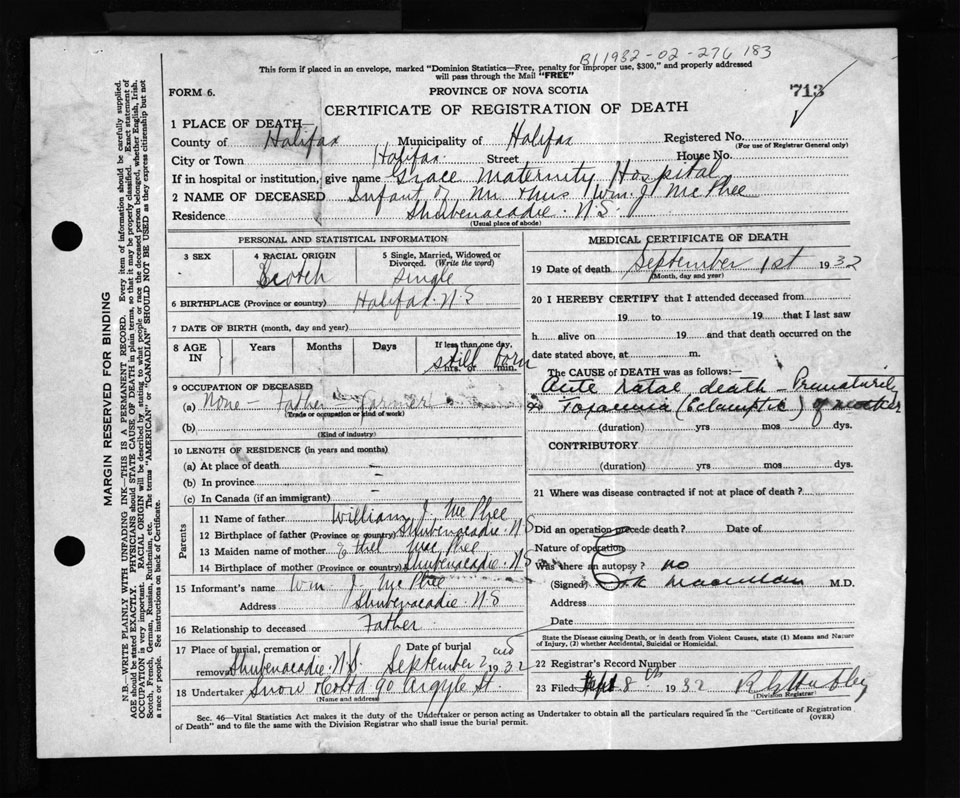 B11932-02-276 183
This form if placed in an envelope, marked "Dominion Statistics—Free, penalty for improper use, $300," and properly addressed
will pass through the Mail "FREE"
FORM 6.
PROVINCE OF NOVA SCOTIA
713
CERTIFICATE OF REGISTRATION OF DEATH
1 PLACE OF DEATH—
County of Halifax Municipality of Halifax Registered No.
(For use of Registrar General only)
City or Town Halifax Street House No.
If in hospital or institution, give name Grace Maternity Hospital
2 NAME OF DECEASED Infant of Mr & Mrs Wm. J McPhee
Residence Shubenacadie. N.S.
(Usual place of abode)
PERSONAL AND STATISTICAL INFORMATION
3 SEX
4 RACIAL ORIGIN
Scotch
5 Single, Married, Widowed or
Divorced. (Write the word)
Single
6 BIRTHPLACE (Province or country) Halifax. N S
7 DATE OF BIRTH (month, day and year)
8 AGE IN Years Months Days If less than one day,
hrs. or min.
still born
9 OCCUPATION OF DECEASED
(a) None — Father — Farmer
(Trade or occupation or kind of work)
(b)
(Kind of industry)
10 LENGTH OF RESIDENCE (in years and months)
(a) At place of death —
(b) In province —
(c) In Canada (if an immigrant) —
Parents
11 Name of father William J. Mc Phee
12 Birthplace of father (Province or country) Shubenacadie. N-S
13 Maiden name of mother Ethel Mac Phee
14 Birthplace of mother (Province or country) Shubenacadie. N S
15 Informant's name Wm. J. McPhee
Address Shubenacadie N-S
16 Relationship to deceased Father
17 Place of burial, cremation or removal Shubenacadie. N.S. Date of burial September 2nd 1932
18 Undertaker Snow & Co Ltd 90 Argyle St.
(Name and address)
MEDICAL CERTIFICATE OF DEATH
19 Date of death September 1st 1932
(Month, day and year)
20 I HEREBY CERTIFY that I attended deceased from
19 to 19 that I last saw
h alive on 19 and that death occurred on the
date stated above, at m.
The CAUSE of DEATH was as follows:—
Ante natal death — Prematurity
& Toxaemia (Eclamptic) of mother
(duration) yrs mos dys.
CONTRIBUTORY
(duration) yrs mos dys.
21 Where was disease contracted if not at place of death?
Did an operation precede death? Date of
Nature of operation
Was there an autopsy? no
(Signed) M.D.
Address
Date
State the Disease causing Death, or in death from Violent Causes, state (1) Means and Nature
of Injury, (2) whether Accidental, Suicidal or Homicidal.
22 Registrar's Record Number
23 Filed Sept 8th 1932
(Division Registrar)
Sec. 46—Vital Statistics Act makes it the duty of the Undertaker or person acting as Undertaker to obtain all the particulars required in the "Certificate of Registration
of Death" and to file the same with the Division Registrar who shall issue the burial permit.
(OVER)
MARGIN RESERVED FOR BINDING
N.B.—WRITE PLAINLY WITH UNFADING INK—THIS IS A PERMANENT RECORD. Every item of information should be carefully supplied.
AGE should be stated EXACTLY. PHYSICIANS should STATE CAUSE OF DEATH in plain terms, so that it may be properly classified. Exact statement of
OCCUPATION is very important. RACIAL ORIGIN will be described by stating to what people or race the deceased person belonged, whether English, Irish,
Scotch, French, German, Russian, Ruthenian, etc. The terms "AMERICAN" or "CANADIAN" SHOULD NOT BE USED as they express citizenship but not
a race or people. See instructions on back of Certificate.